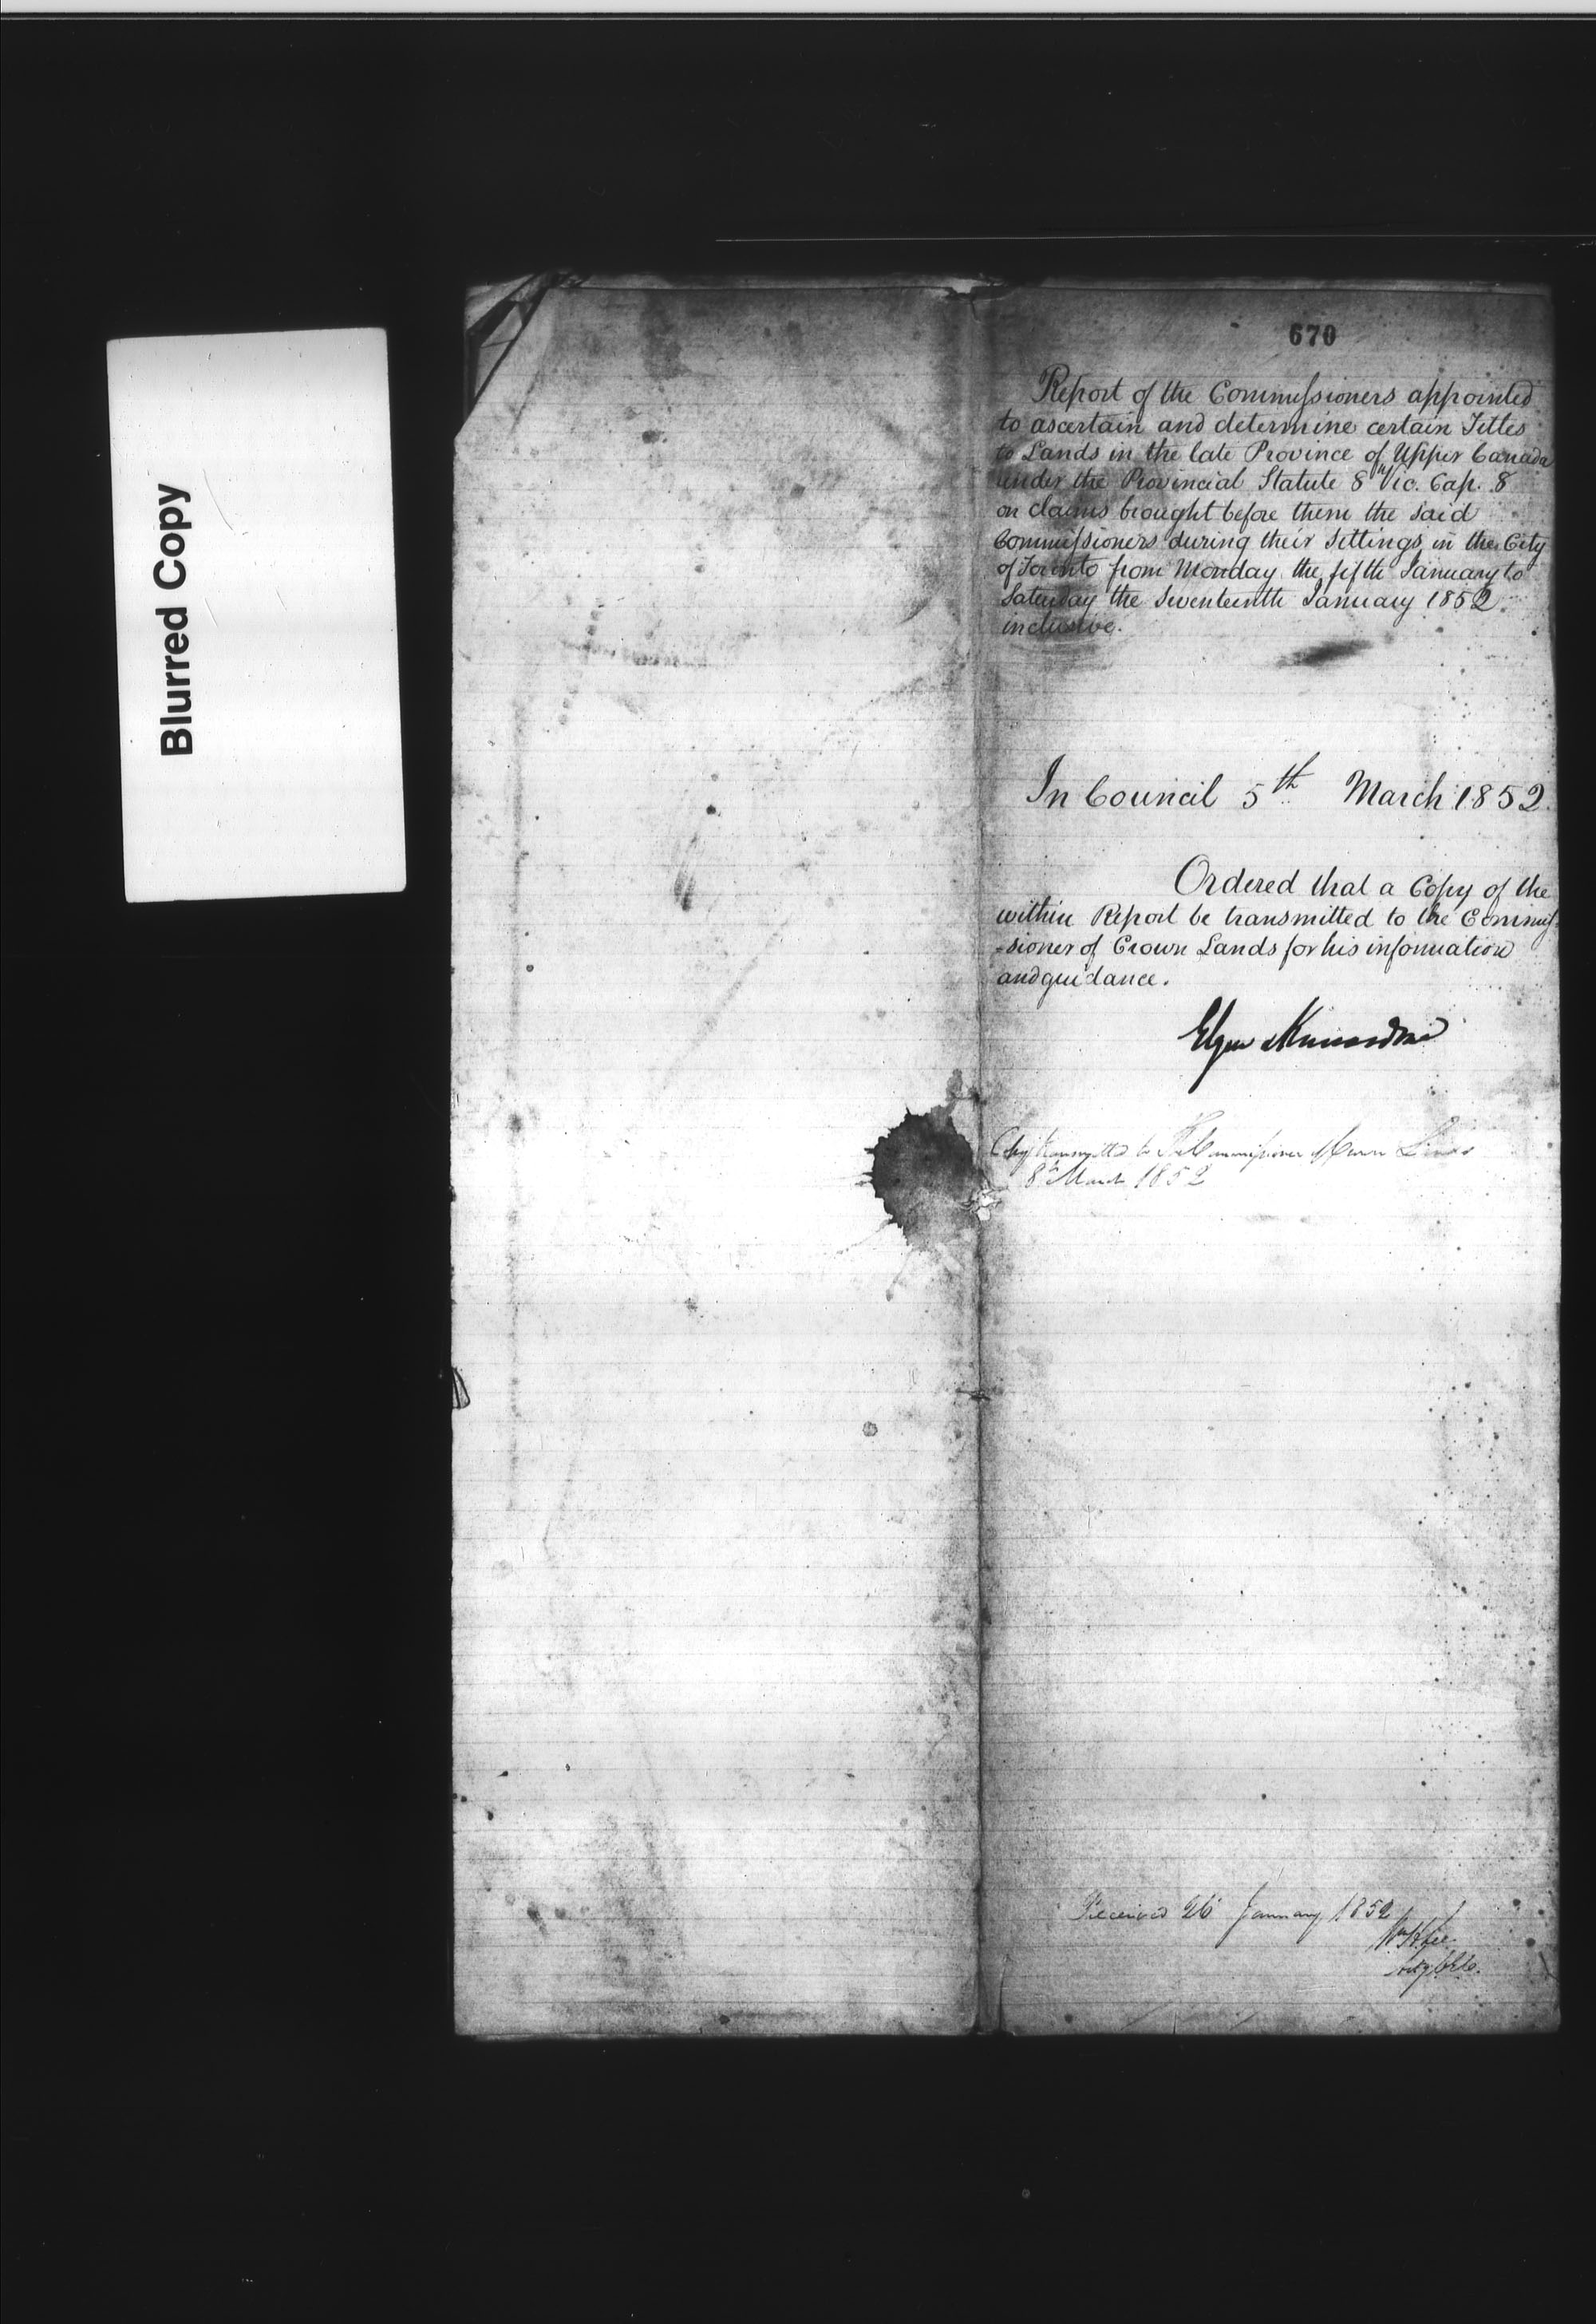 Blurred Copy
670
Report of the Commissioners appointed
to ascertain and determine certain Titles
to Lands in the late Province of Upper Canada
under the Provincial Statute 8th Vic. Cap. 8
on claims brought before them the said
Commissioners during their Sittings in the City
of Toronto from Monday the fifth January to
Saturday the Seventeenth January 1852
inclusive.
In Council 5th March 1852.
Ordered that a Copy of the
within Report be transmitted to the Commis-
-sioner of Crown Lands for his information
and guidance.
Elgin & Kincardine
Copy transmitted to The Commissioner Crown Lands
8th March 1852
Received 26 January 1852
Wm H Lee